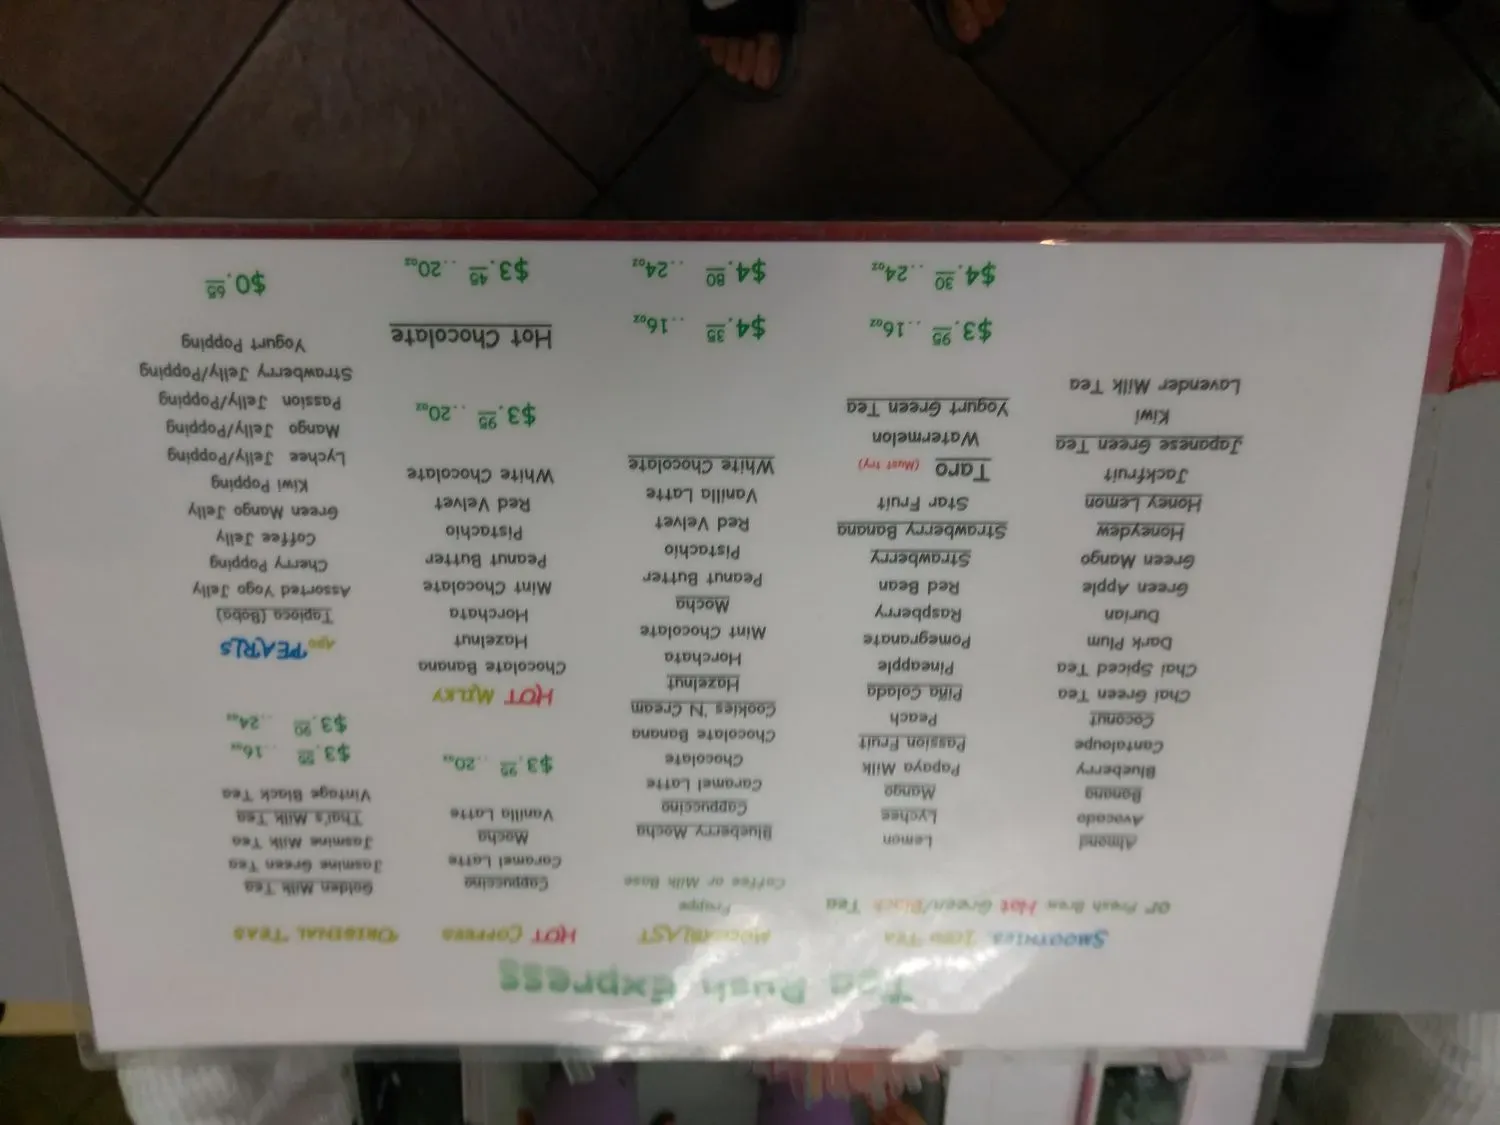 Tea Rush Express
SMOOTHIES, ICED TEA
or Fresh Brew Hot Green/Black Tea
Almond
Avocado
Banana
Blueberry
Cantaloupe
Coconut
Chai Green Tea
Chai Spiced Tea
Dark Plum
Durian
Green Apple
Green Mango
Honeydew
Honey Lemon
Jackfruit
Japanese Green Tea
Kiwi
Lavender Milk Tea
Lemon
Lychee
Mango
Papaya Milk
Passion Fruit
Peach
Piña Colada
Pineapple
Pomegranate
Raspberry
Red Bean
Strawberry
Strawberry Banana
Star Fruit
Taro (Must try)
Watermelon
Yogurt Green Tea
$3.95 ..16oz
$4.30 ..24oz
MOCHABLAST
Frappe
Coffee or Milk Base
Blueberry Mocha
Cappuccino
Caramel Latte
Chocolate
Chocolate Banana
Cookies 'N Cream
Hazelnut
Horchata
Mint Chocolate
Mocha
Peanut Butter
Pistachio
Red Velvet
Vanilla Latte
White Chocolate
$4.35 ..16oz
$4.80 ..24oz
HOT COFFEES
Cappuccino
Caramel Latte
Mocha
Vanilla Latte
$3.95 ..20oz
HOT MILKY
Chocolate Banana
Hazelnut
Horchata
Mint Chocolate
Peanut Butter
Pistachio
Red Velvet
White Chocolate
$3.95 ..20oz
Hot Chocolate
$3.45 ..20oz
ORIGINAL TEAS
Golden Milk Tea
Jasmine Green Tea
Jasmine Milk Tea
Thai's Milk Tea
Vintage Black Tea
$3. ..16oz
$3.90 ..24oz
ADD PEARLS
Tapioca (Boba)
Assorted Yogo Jelly
Cherry Popping
Coffee Jelly
Green Mango Jelly
Kiwi Popping
Lychee Jelly/Popping
Mango Jelly/Popping
Passion Jelly/Popping
Strawberry Jelly/Popping
Yogurt Popping
$0.65